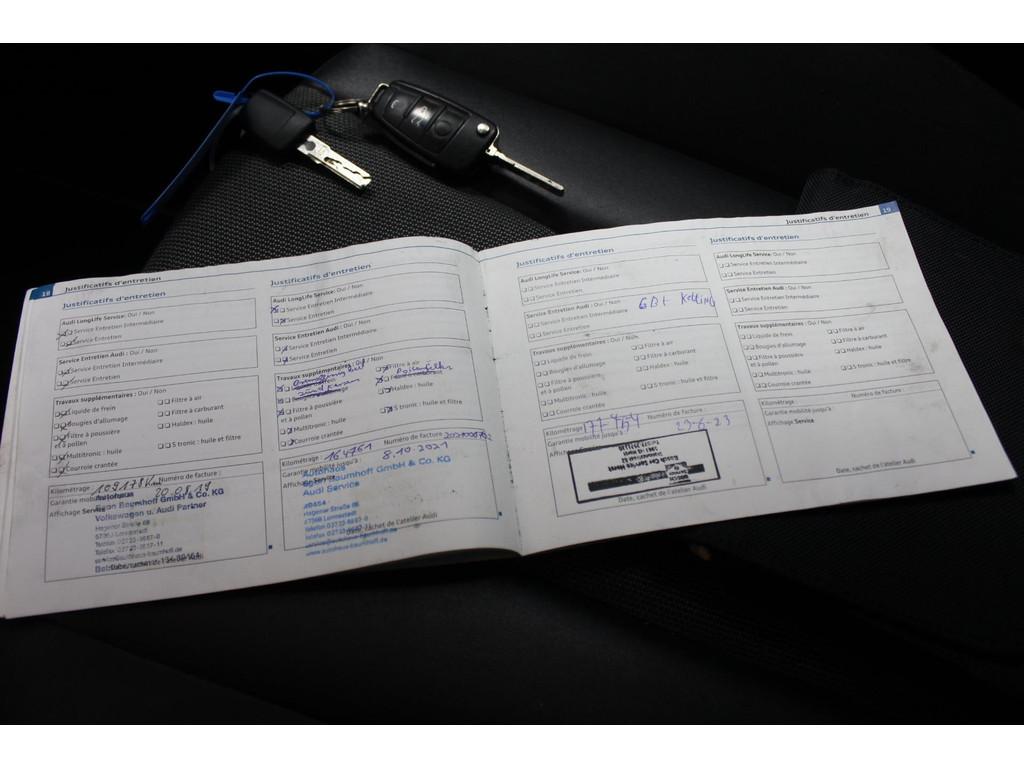 18 Justificatifs d'entretien
Justificatifs d'entretien
Audi LongLife Service: Oui / Non
Service Entretien Intermédiaire
Service Entretien
Service Entretien Audi : Oui / Non
Service Entretien Intermédiaire
Service Entretien
Travaux supplémentaires : Oui / Non
Liquide de frein
Filtre à air
Bougies d'allumage
Filtre à carburant
Filtre à poussière
et à pollen
Haldex : huile
Multitronic : huile
S tronic : huile et filtre
Courroie crantée
Kilométrage : 109178 Numéro de facture :
Garantie mobilité 20.08.19
Affichage Service
Autohaus
Sven Baumhoff GmbH & Co. KG
Volkswagen u. Audi Partner
Hagener Straße
Justificatifs d'entretien
Audi LongLife Service: Oui / Non
Service Entretien Intermédiaire
Service Entretien
Service Entretien Audi : Oui / Non
Service Entretien Intermédiaire
Service Entretien
Travaux supplémentaires : Oui / Non
Filtre à air
Pollenfilter
Filtre à poussière
et à pollen
Haldex : huile
Multitronic : huile
S tronic : huile et filtre
Courroie crantée
Kilométrage : 164761 Numéro de facture
Garantie mobilité jusqu'à : 8.10.2021
Autohaus
Sven Baumhoff GmbH & Co. KG
Audi Service
Hagener Straße
Date, cachet de l'atelier Audi
www.autohaus-baumhoff.de
Justificatifs d'entretien
Audi LongLife Service: Oui / Non
Service Entretien Intermédiaire
Service Entretien
Service Entretien Audi : Oui / Non
Service Entretien Intermédiaire
Service Entretien
Travaux supplémentaires : Oui / Non
Liquide de frein
Filtre à air
Bougies d'allumage
Filtre à carburant
Filtre à poussière
et à pollen
Haldex : huile
Multitronic : huile
S tronic : huile et filtre
Courroie crantée
Kilométrage : 177-454 Numéro de facture :
Garantie mobilité jusqu'à : 29-6-23
Affichage
Bosch Car Service
Date, cachet de l'atelier Audi
Justificatifs d'entretien 19
Justificatifs d'entretien
Audi LongLife Service: Oui / Non
Service Entretien Intermédiaire
Service Entretien
Service Entretien Audi : Oui / Non
Service Entretien Intermédiaire
Service Entretien
Travaux supplémentaires : Oui / Non
Liquide de frein
Filtre à air
Bougies d'allumage
Filtre à carburant
Filtre à poussière
et à pollen
Haldex : huile
Multitronic : huile
S tronic : huile et filtre
Courroie crantée
Kilométrage : Numéro de facture :
Garantie mobilité jusqu'à :
Affichage Service
Date, cachet de l'atelier Audi